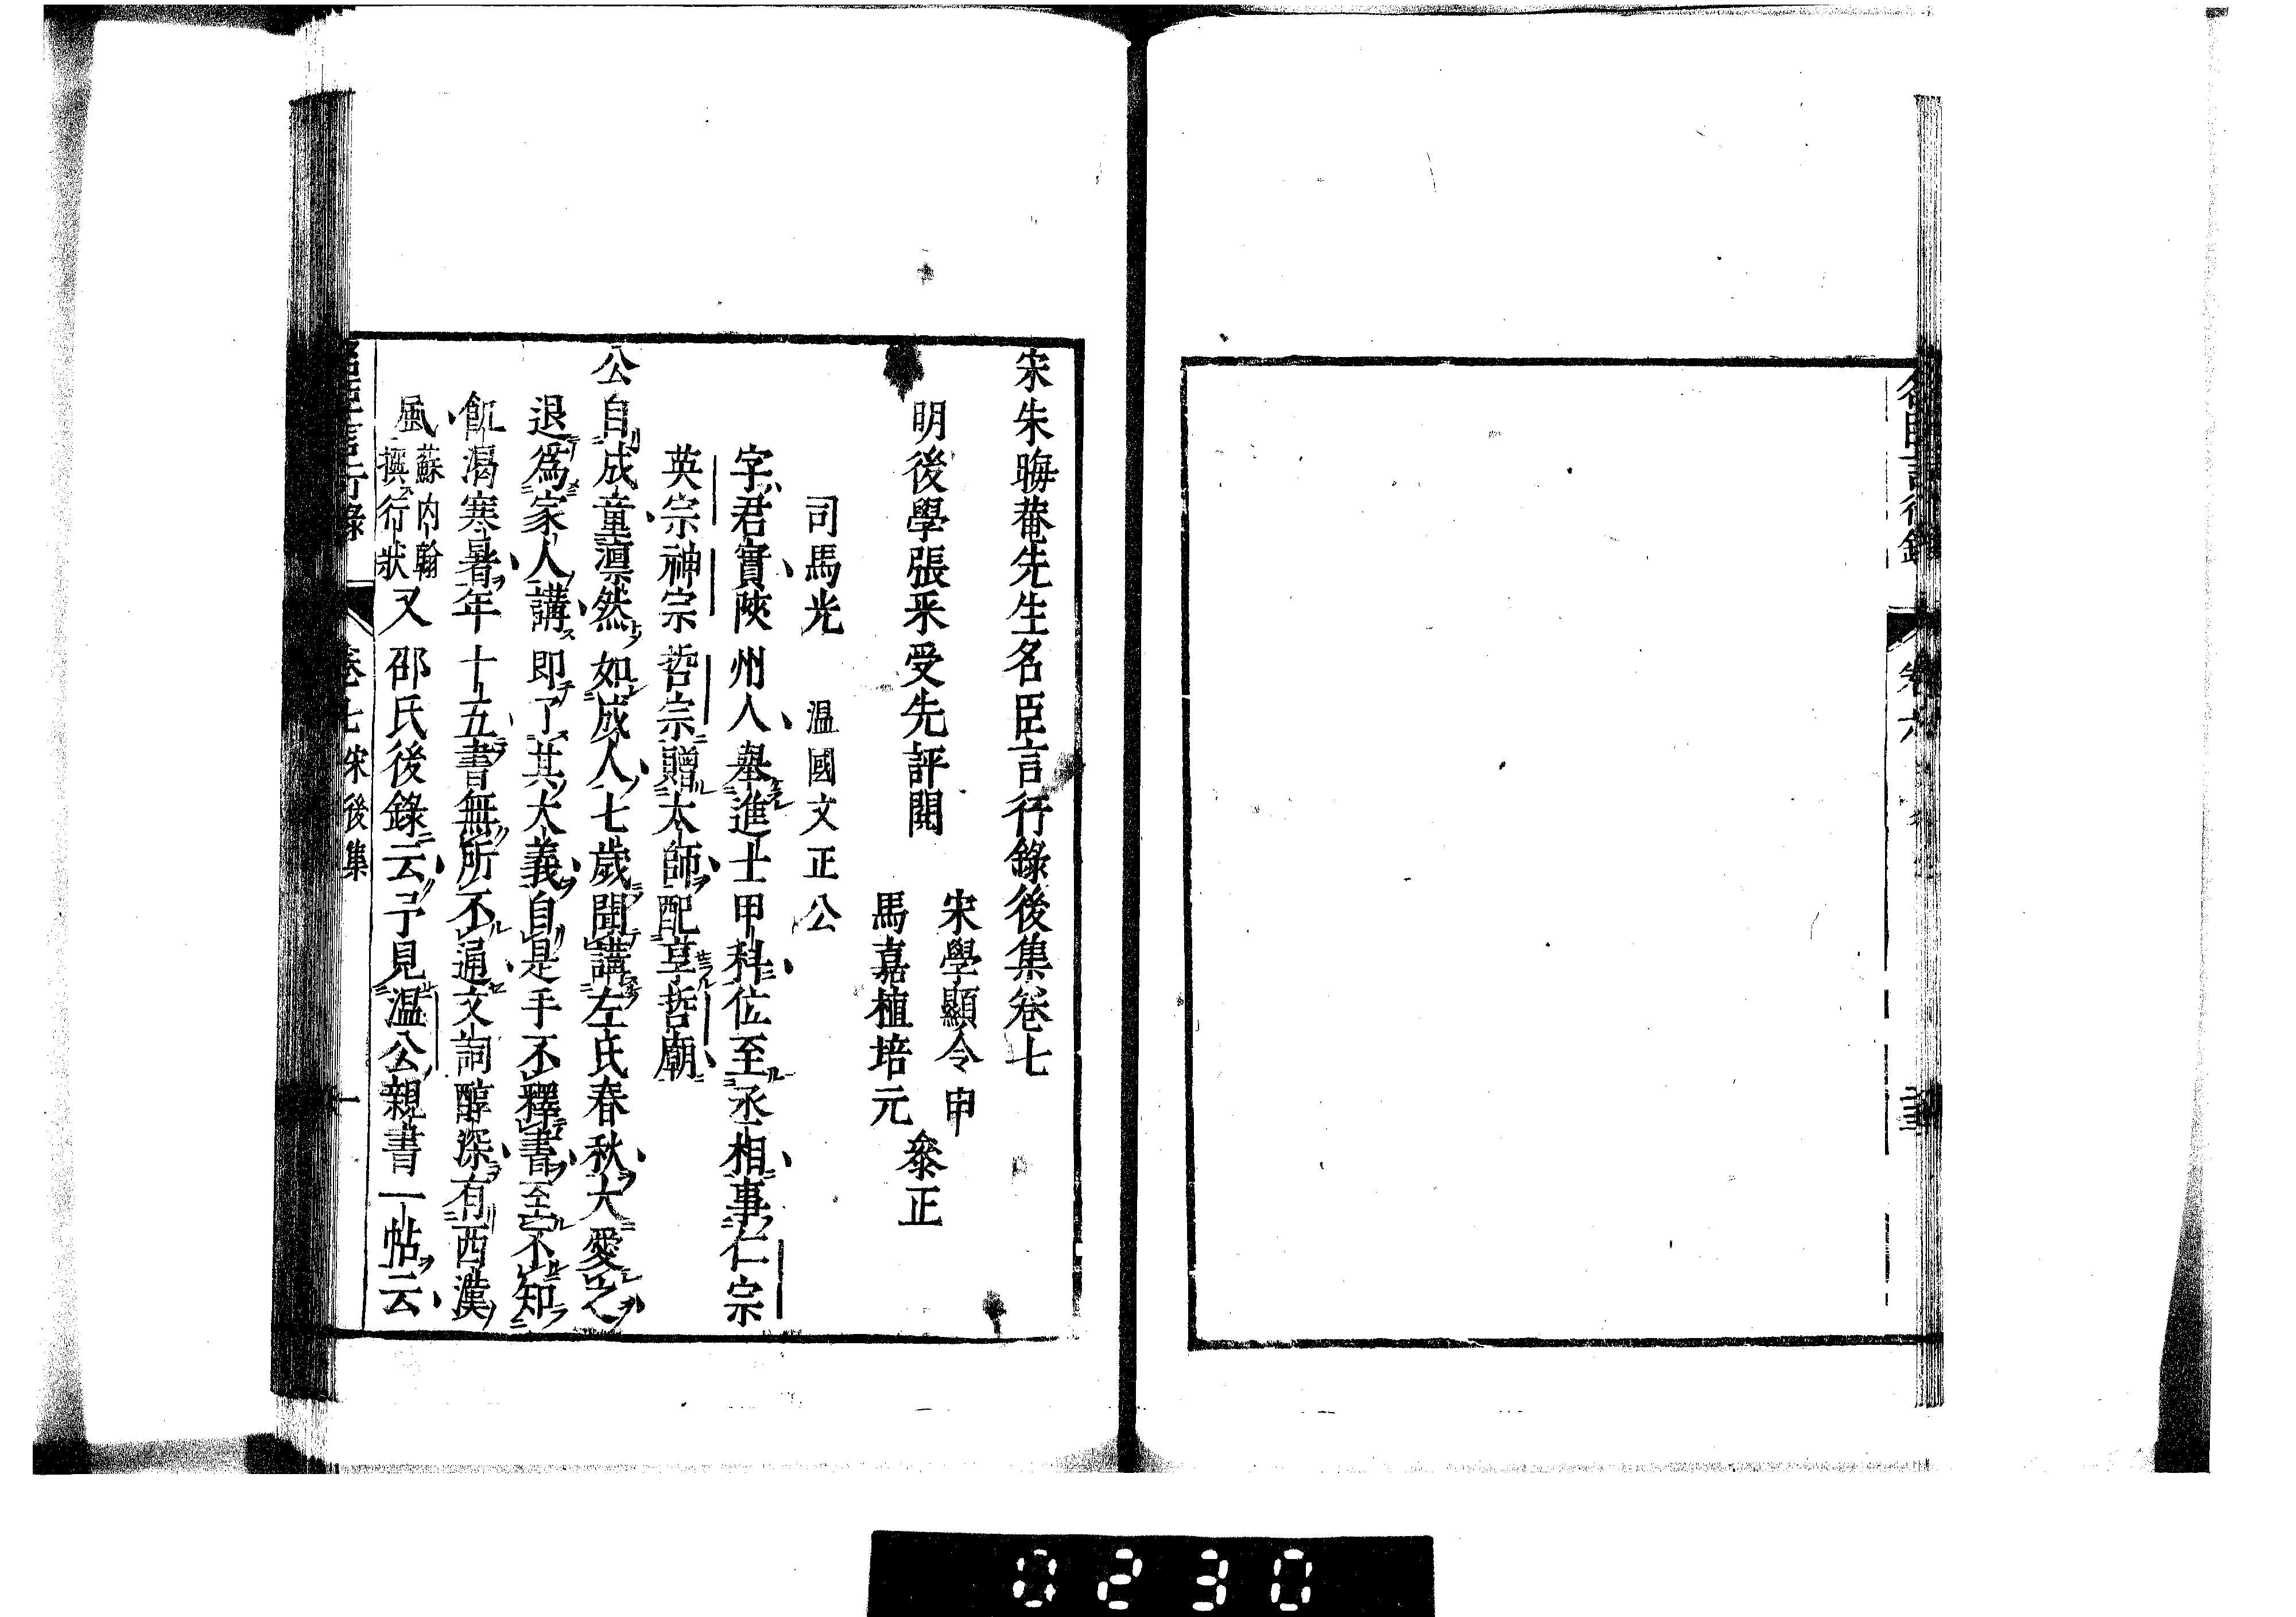 名臣言行錄 卷六
宋朱晦菴先生名臣言行錄後集卷七
明後學張采受先評閱
宋學顯令申
馬嘉植培元
叅正
司馬光 溫國文正公
字君實陝州人舉進士甲科位至丞相事仁宗
英宗神宗哲宗贈太師配享哲廟
公自成童凛然如成人七歲聞講左氏春秋大愛之
退爲家人講即了其大義自是手不釋書至不知
飢渴寒暑年十五書無所不通文詞醇深有西漢
風蘇内翰撰行狀又邵氏後錄云予見溫公親書一帖云
名臣言行錄 卷七 宋後集 一
0230